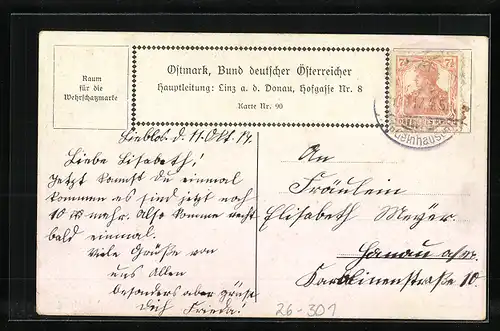 Raum
für die
Wehrschatzmarke
Ostmark, Bund deutscher Österreicher
Hauptleitung: Linz a. d. Donau, Hofgasse Nr. 8
Karte Nr. 90
7½ 7½
Lieblos d. 11. Okt. 17.
Liebe Lisabeth!
Jetzt kannst du einmal
kommen es sind jetzt noch
10 mehr. Also komme recht
bald einmal.
Viele Grüße von
uns Allen
besonders aber grüßt
Dich Frieda!
An
Fräulein
Elisabeth Meyer
Hanau a/m.
Karolinenstraße 10.
26-301